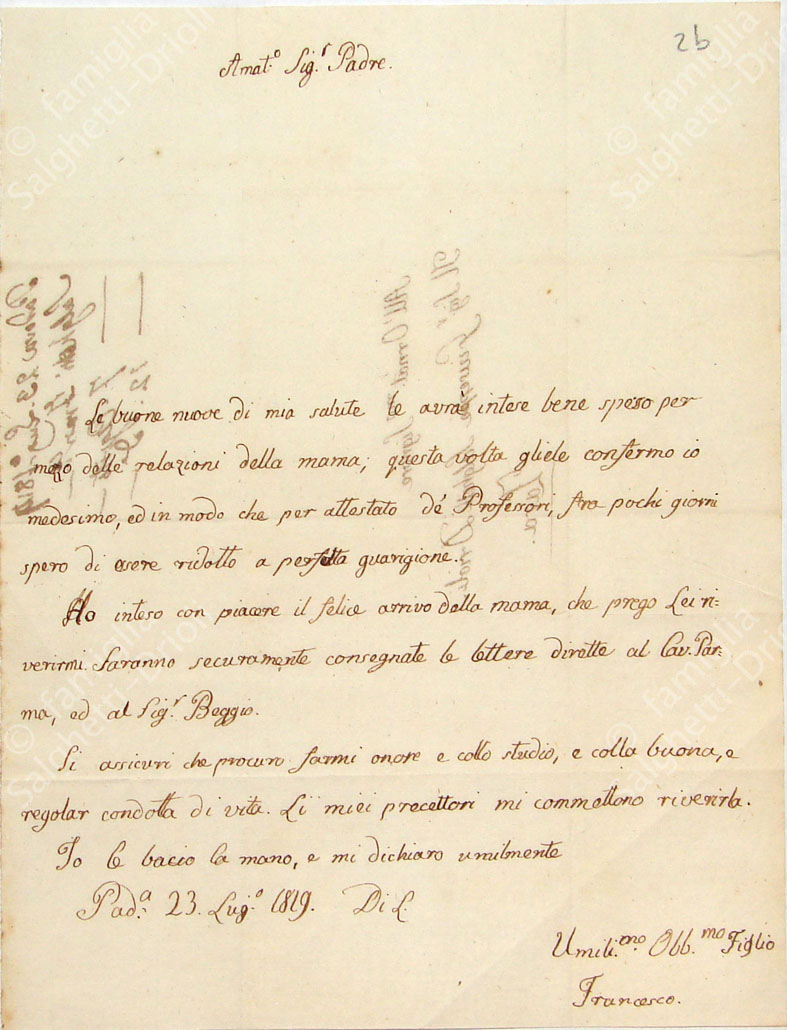 2b
Amat.º Sig.r Padre.
Le buone nuove di mia salute le avrà intese bene spesso per
mezo delle relazioni della mama; questa volta gliele confermo io
medesimo, ed in modo che per attestato de' Professori, fra pochi giorni
spero di essere ridotto a perfetta guarigione.
Ho inteso con piacere il felice arrivo della mama, che prego Lei ri=
verirmi. Saranno securamente consegnate le lettere dirette al Cav. Par=
ma, ed al Sig.r Beggio.
Si assicuri che procuro farmi onore e collo studio, e colla buona, e
regolar condotta di vita. Li miei precettori mi commettono riverirla.
Io le bacio la mano, e mi dichiaro umilmente
Pad.ª 23. Lug.º 1819. Di L.
Umili.mo Obb.mo Figlio
Francesco.
© famiglia
Salghetti-Drioli
© famiglia
Salghetti-Drioli
© famiglia
Salghetti-Drioli
© famiglia
Salghetti-Drioli